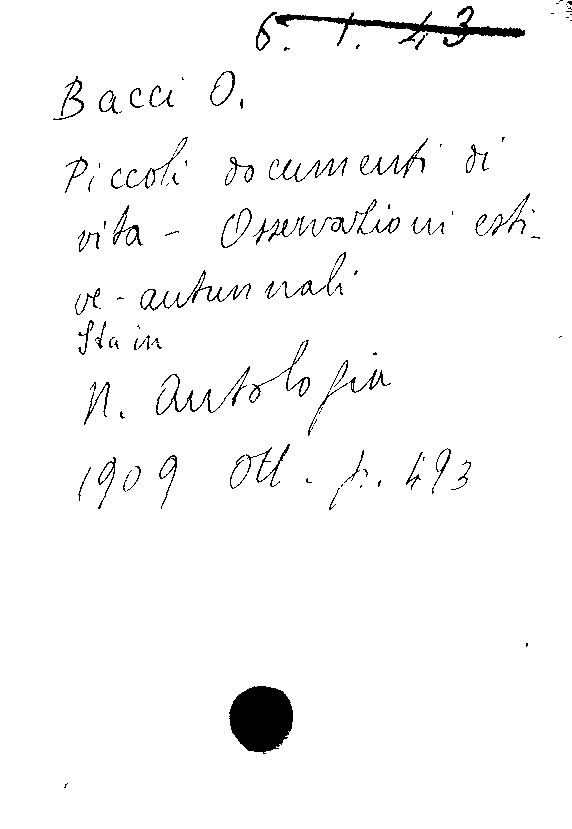 6. 1. 43
Bacci O.
Piccoli documenti di
vita - Osservazioni esti-
ve-autunnali
Sta in
N. Antologia
1909 Ott. p. 493